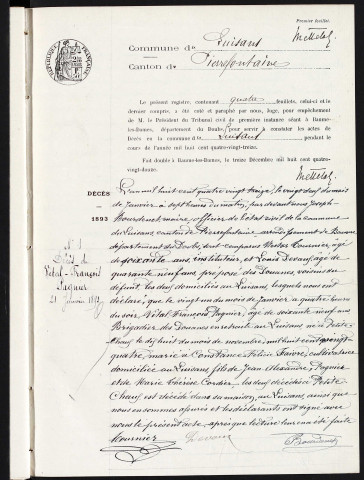 Premier feuillet.
Commune de Luisans
Mettetal
Canton de Pierrefontaine
RÉPUBLIQUE FRANÇAISE
Le présent registre, contenant quatre feuillets, celui-ci et le
dernier compris, a été coté et paraphé par nous, Juge, pour empêchement
de M. le Président du Tribunal civil de première instance séant à Baume-
les-Dames, département du Doubs, pour servir à constater les actes de
Décès en la commune de Luisans pendant le
cours de l'année mil huit cent quatre-vingt-treize.
Fait double à Baume-les-Dames, le treize Décembre mil huit cent quatre-
vingt-douze.
Mettetal
DÉCÈS
1893
N° 1
Décès de
Vital-François
Pagnier
21 Janvier 1893
L'an mil huit cent quatre vingt treize, le vingt deux du mois
de Janvier à sept heures du matin, par devant nous Joseph
maire, officier de l'état civil de la commune
de Luisans canton de Pierrefontaine arrondissement de Baume
département du Doubs, sont comparus Victor Cournier, âgé
de soixante ans, instituteur, et Louis âgé de
quarante neuf ans, préposé des Douanes, voisins du
défunt, les deux domiciliés au Luisans, lesquels nous ont
déclaré, que le vingt un du mois de Janvier à quatre heures
du soir, Vital François Pagnier, âgé de soixante neuf ans
Brigadier des Douanes en retraite au Luisans né à Petite
Chaux, le dix huit du mois de novembre, mil huit cent vingt
quatre, marié à Constance Félicie Faivre, cultivatrice
domiciliée au Luisans, fils de Jean Alexandre Pagnier
et de Marie Thérèse Cordier, les deux décédés à Petite
Chaux, est décédé dans sa maison, au Luisans, ainsi que
nous en sommes assurés et les déclarants ont signé avec
nous le présent acte, après que lecture leur en a été faite
Cournier